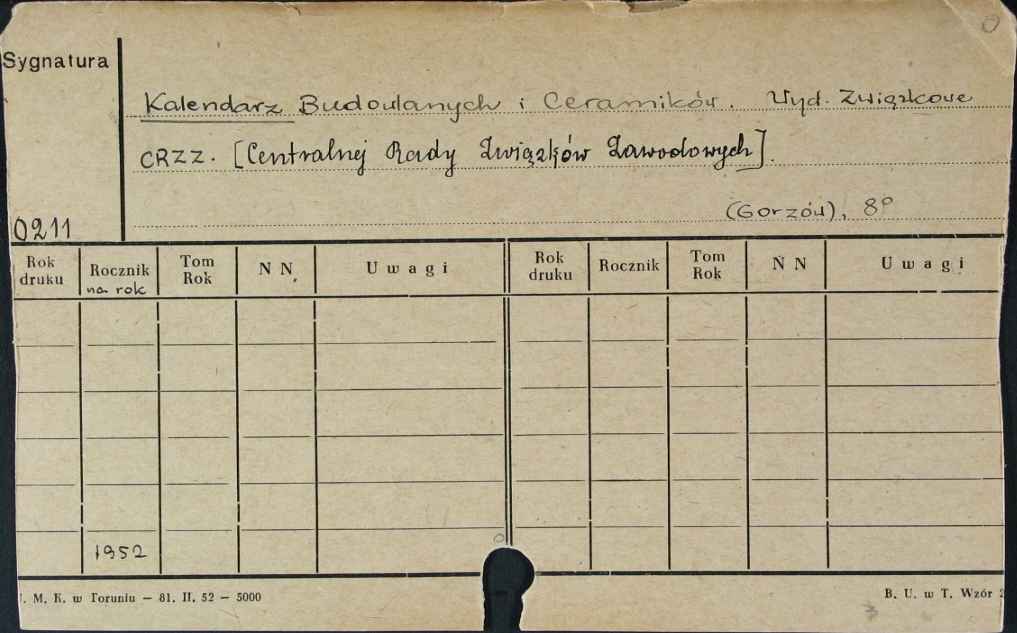 Sygnatura
Kalendarz Budowlanych i Ceramików. Wyd. Związkowe
CRZZ. [Centralnej Rady Związków Zawodowych].
(Gorzów), 8º
0211
Rok druku Rocznik na rok Tom Rok N N. Uwagi Rok druku Rocznik Tom Rok N N Uwagi
1952
M. K. w Toruniu — 81. II. 52 — 5000
B. U. w T. Wzór